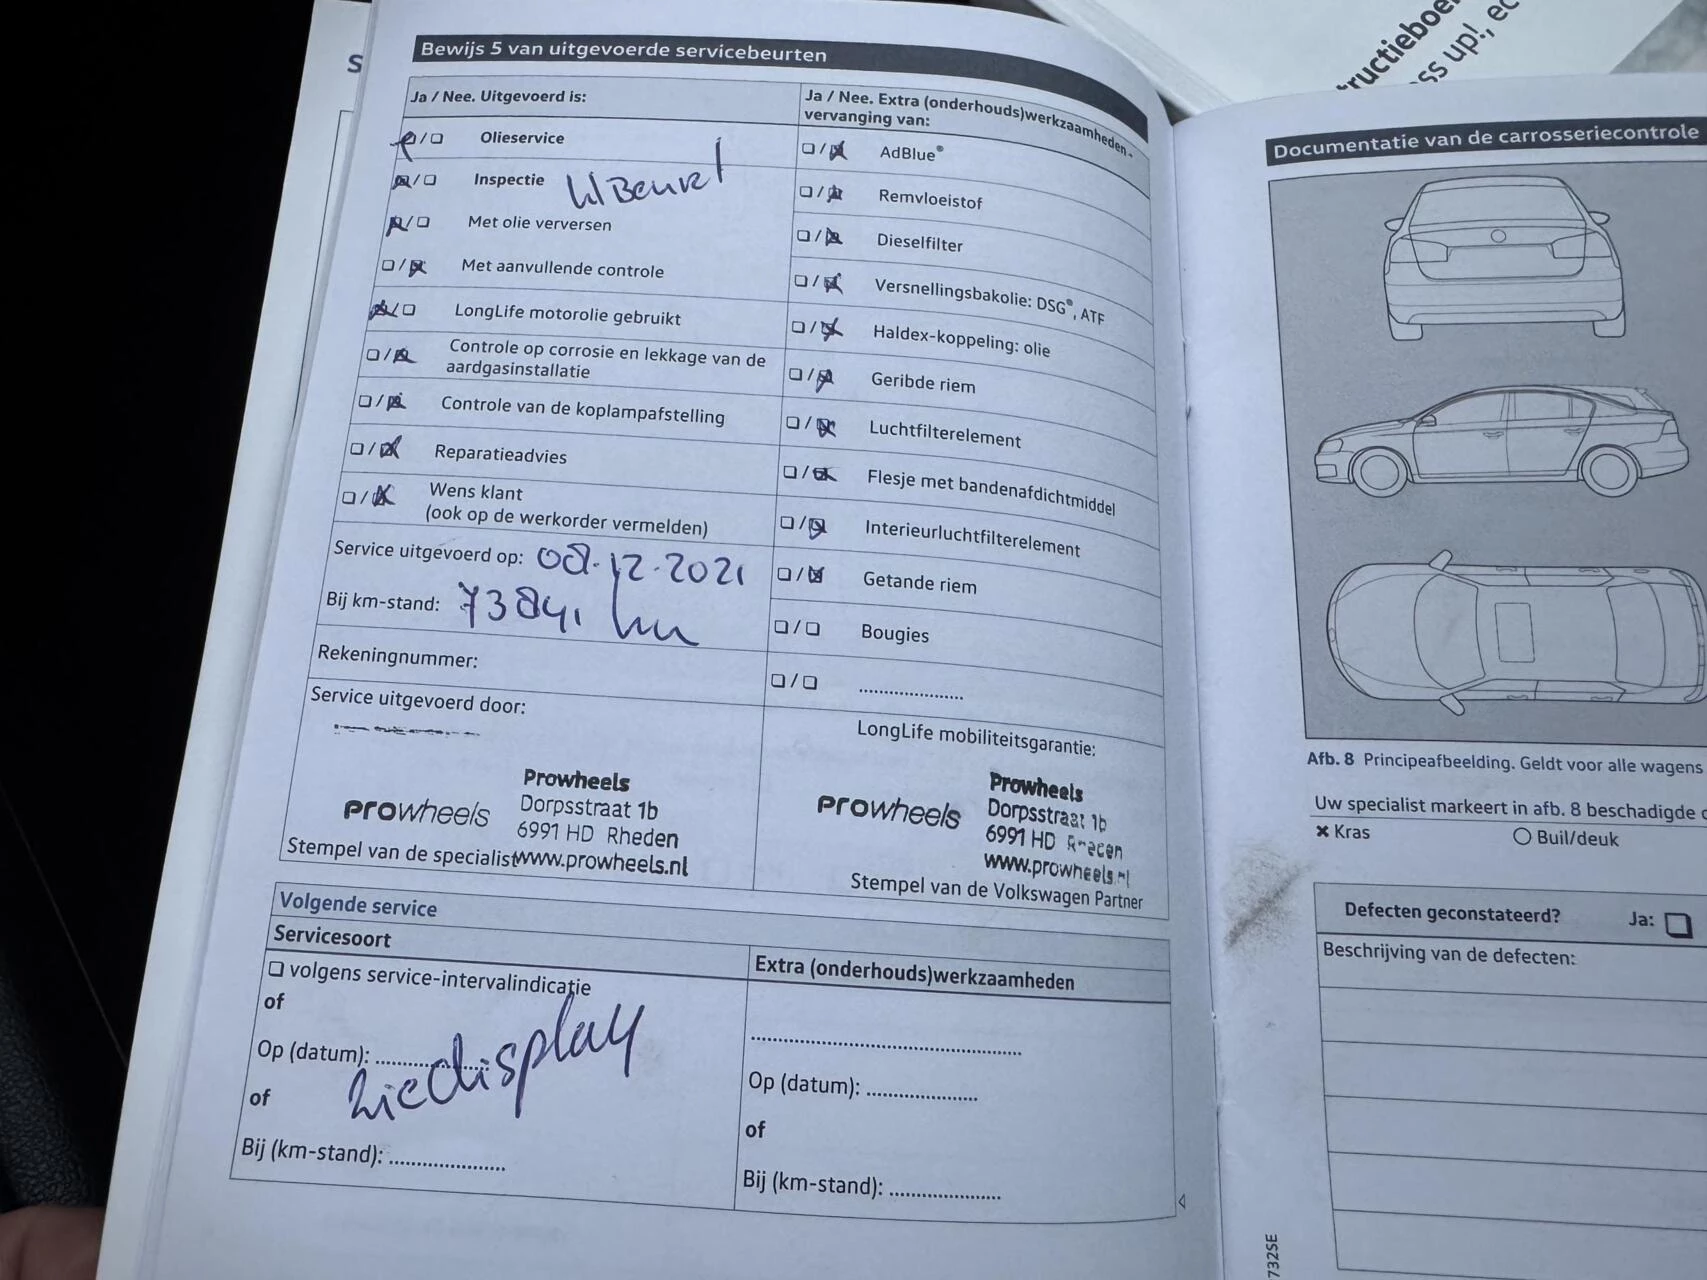 Bewijs 5 van uitgevoerde servicebeurten
Ja / Nee. Uitgevoerd is:
Olieservice
Inspectie
Met olie verversen
Met aanvullende controle
LongLife motorolie gebruikt
Controle op corrosie en lekkage van de
aardgasinstallatie
Controle van de koplampafstelling
Reparatieadvies
Wens klant
(ook op de werkorder vermelden)
Service uitgevoerd op: 08.12.2021
Bij km-stand: 73841 km
Rekeningnummer:
Service uitgevoerd door:
prowheels
Prowheels
Dorpsstraat 1b
6991 HD Rheden
www.prowheels.nl
Stempel van de specialist
Ja / Nee. Extra (onderhouds)werkzaamheden-
vervanging van:
AdBlue®
Remvloeistof
Dieselfilter
Versnellingsbakolie: DSG®, ATF
Haldex-koppeling: olie
Geribde riem
Luchtfilterelement
Flesje met bandenafdichtmiddel
Interieurluchtfilterelement
Getande riem
Bougies
LongLife mobiliteitsgarantie:
prowheels
Prowheels
Dorpsstraat 1b
6991 HD Rheden
www.prowheels.nl
Stempel van de Volkswagen Partner
Volgende service
Servicesoort
volgens service-intervalindicatie
of
Op (datum):
zie display
of
Bij (km-stand):
Extra (onderhouds)werkzaamheden
Op (datum):
of
Bij (km-stand):
Documentatie van de carrosseriecontrole
Afb. 8 Principeafbeelding. Geldt voor alle wagens
Uw specialist markeert in afb. 8 beschadigde
× Kras
○ Buil/deuk
Defecten geconstateerd? Ja:
Beschrijving van de defecten:
732SE
up!,